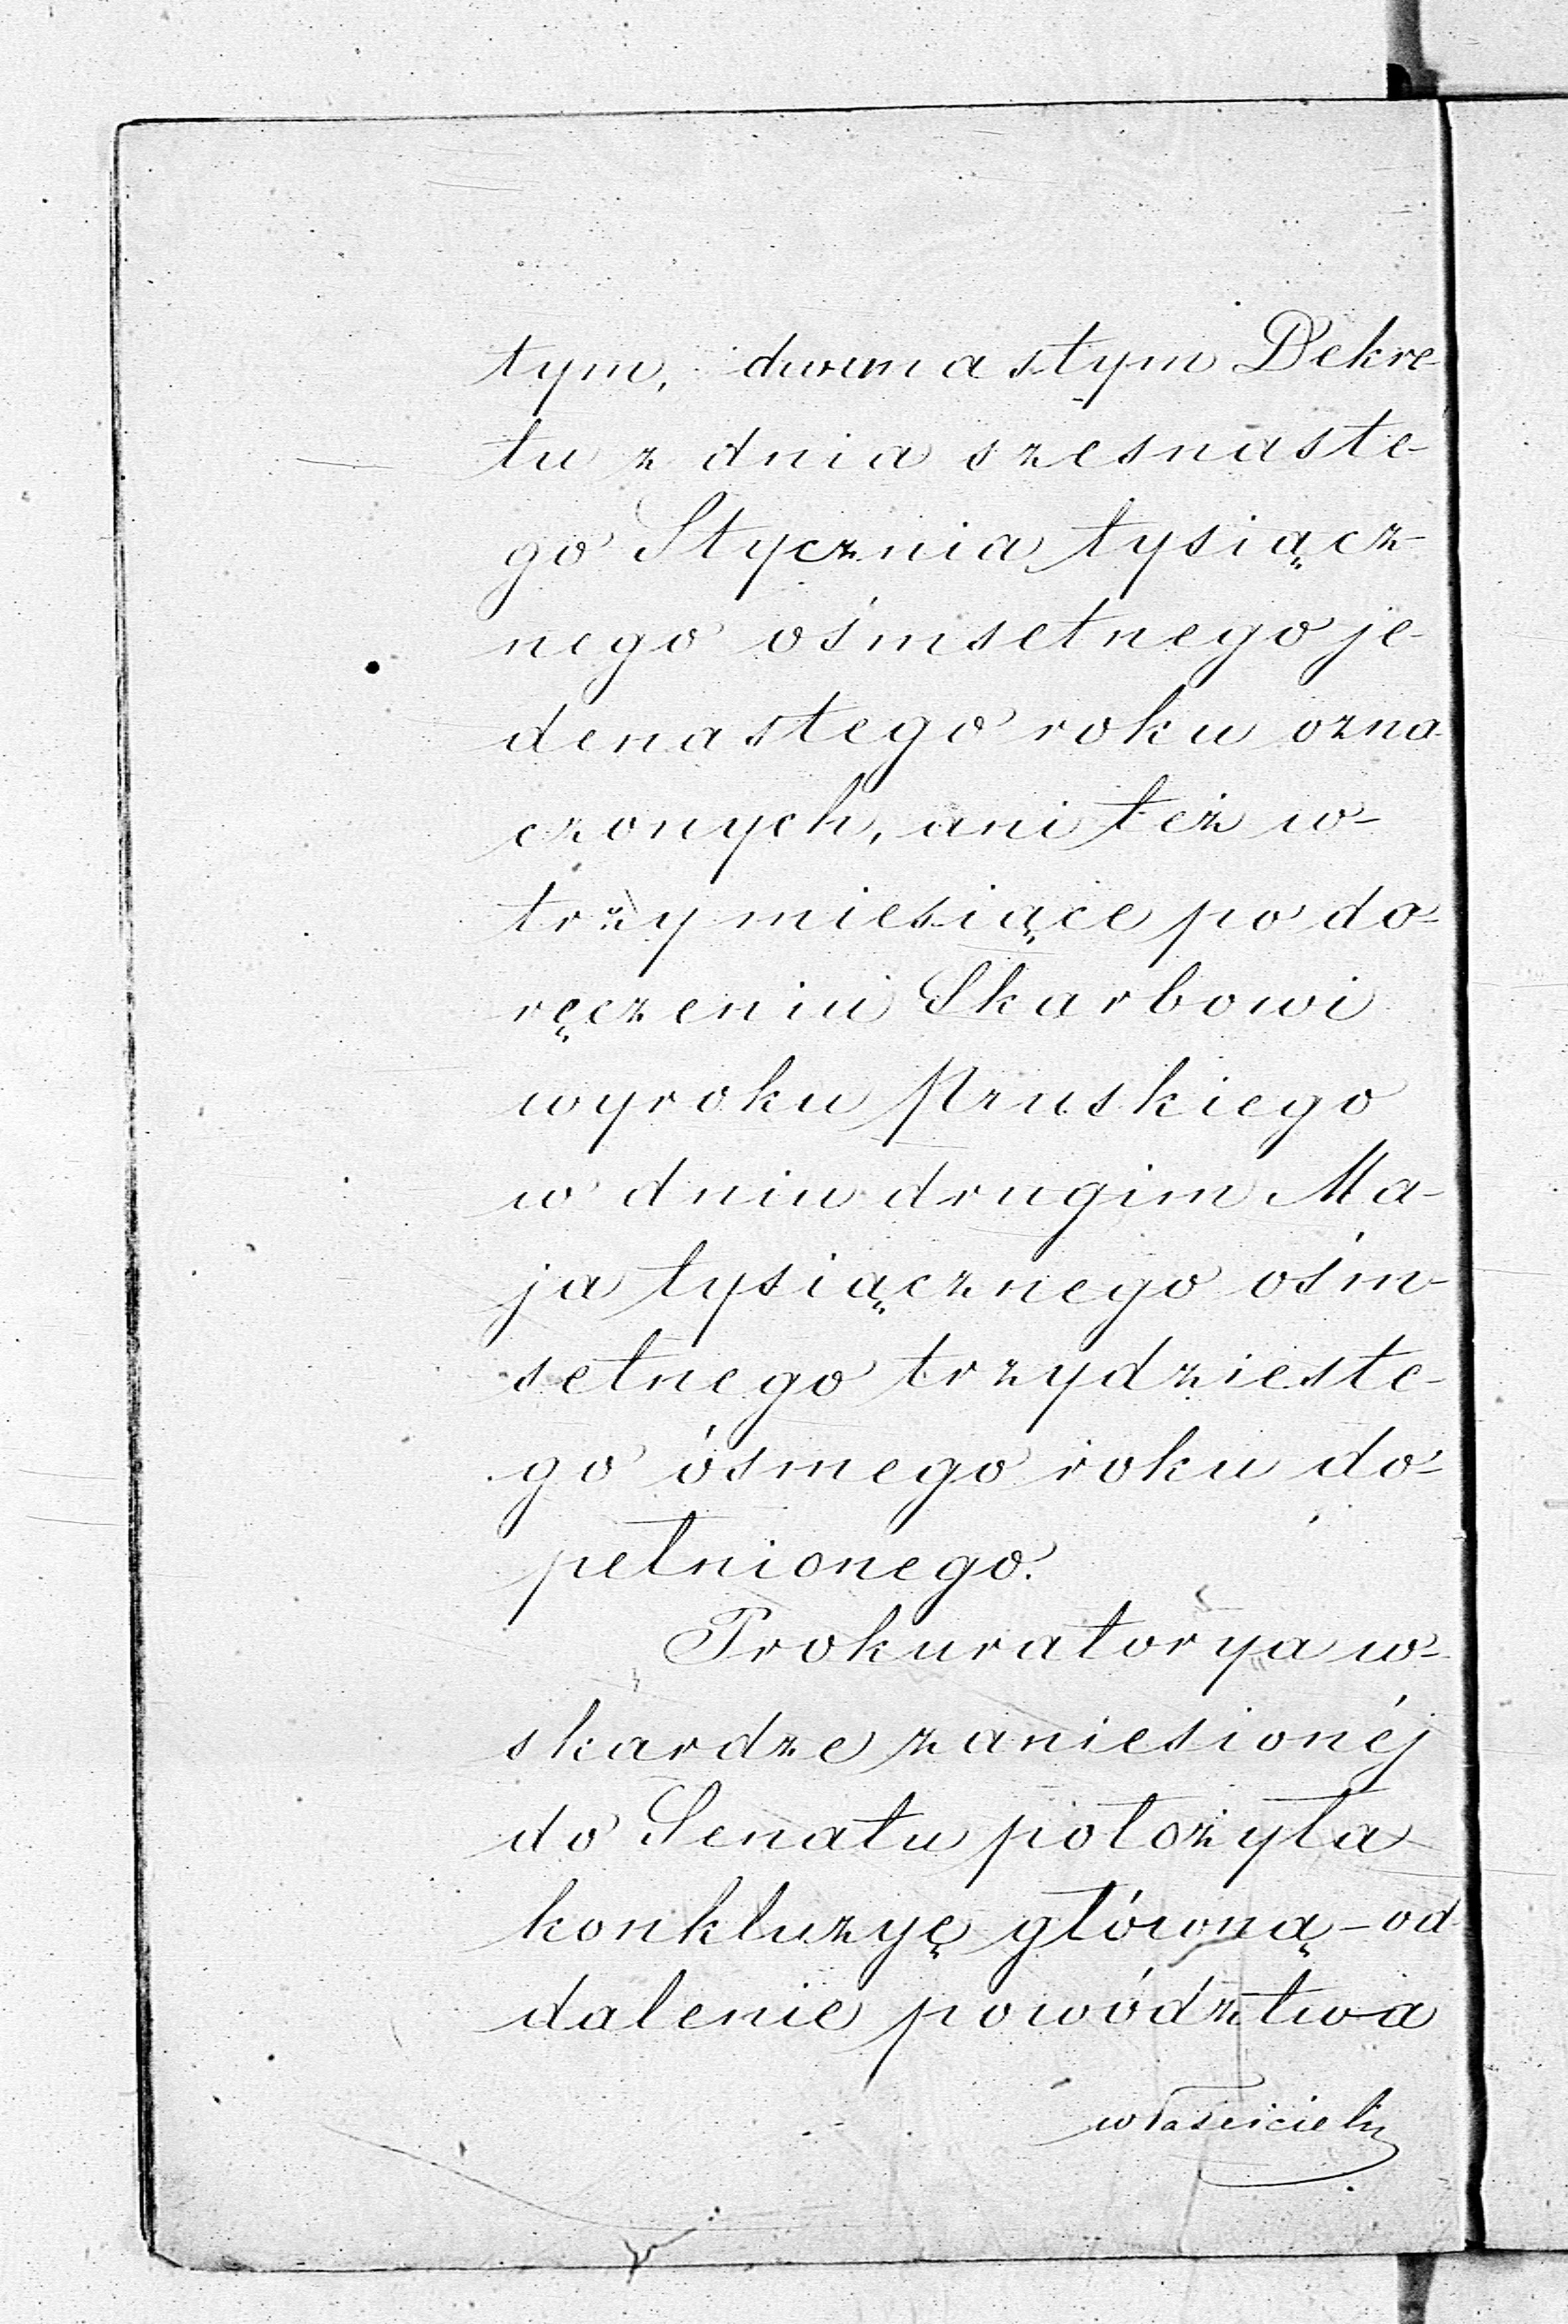 tym, dwunastym Dekre-
tu z dnia szesnaste-
go Stycznia tysiącz-
nego ośmsetnego je-
denastego roku ozna-
czonych, ani też w-
trzy miesiące po do-
ręczeniu Skarbowi
wyroku Pruskiego
w dniu drugim Ma-
ja tysiącznego ośm-
setnego trzydzieste-
go ósmego roku do-
pełnionego.
Prokuratorya w-
skardze zaniesionéj
do Senatu położyła
konkluzyę główną - od
dalenie powództwa
właścicieli